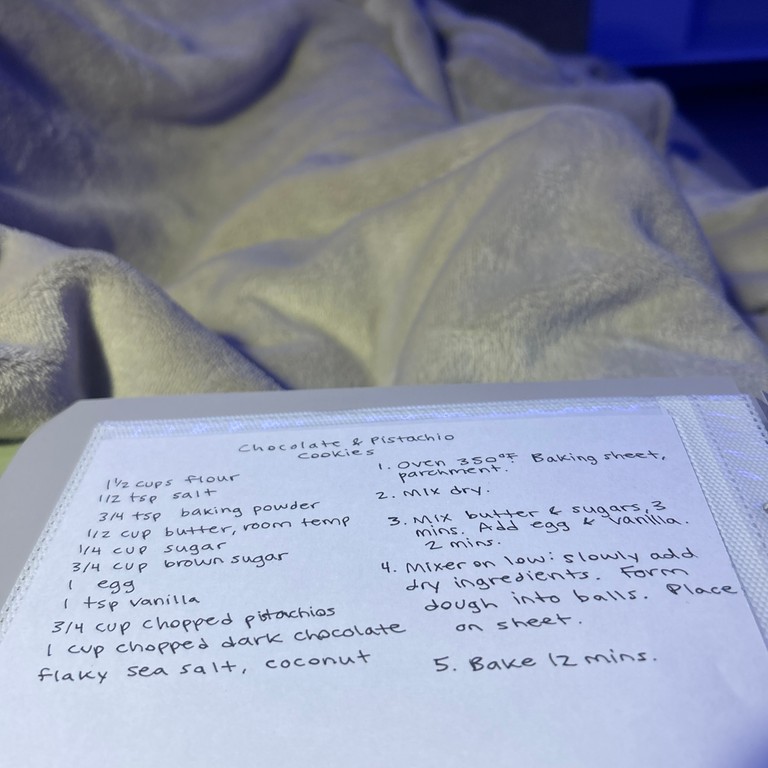 Chocolate & Pistachio
Cookies
1 1/2 cups flour
1/2 tsp salt
3/4 tsp baking powder
1/2 cup butter, room temp
1/4 cup sugar
3/4 cup brown sugar
1 egg
1 tsp vanilla
3/4 cup chopped pistachios
1 cup chopped dark chocolate
flaky sea salt, coconut
1. Oven 350°F Baking sheet,
parchment.
2. Mix dry.
3. Mix butter & sugars, 3
mins. Add egg & vanilla.
2 mins.
4. Mixer on low: slowly add
dry ingredients. Form
dough into balls. Place
on sheet.
5. Bake 12 mins.